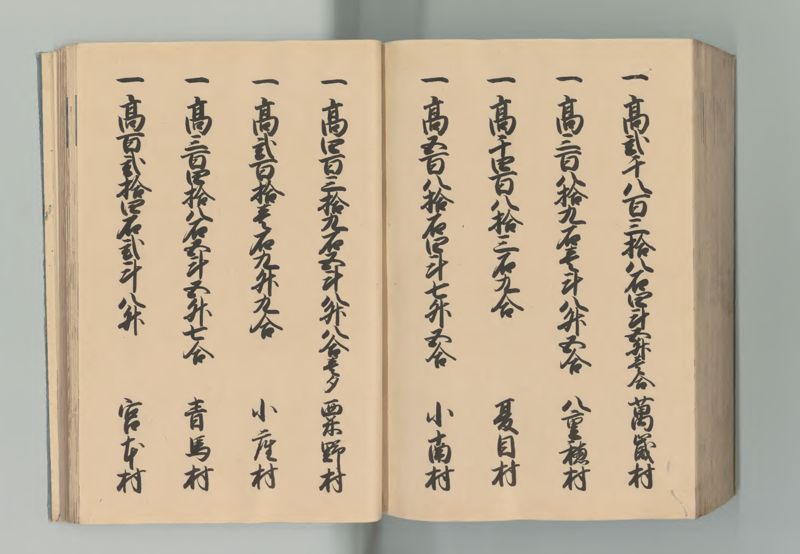 一 高弐千八百三拾八石四斗五升壱合 萬歳村
一 高三百八拾九石壱斗八升五合 八重穂村
一 高千四百八拾三石九合 夏目村
一 高五百八拾石四斗七升五合 小南村
一 高四百三拾九石五斗八升八合壱夕 粟野村
一 高弐百拾壱石九升九合 小座村
一 高三百四拾八石五斗五升七合 青馬村
一 高百弐拾四石弐斗八升 宮本村